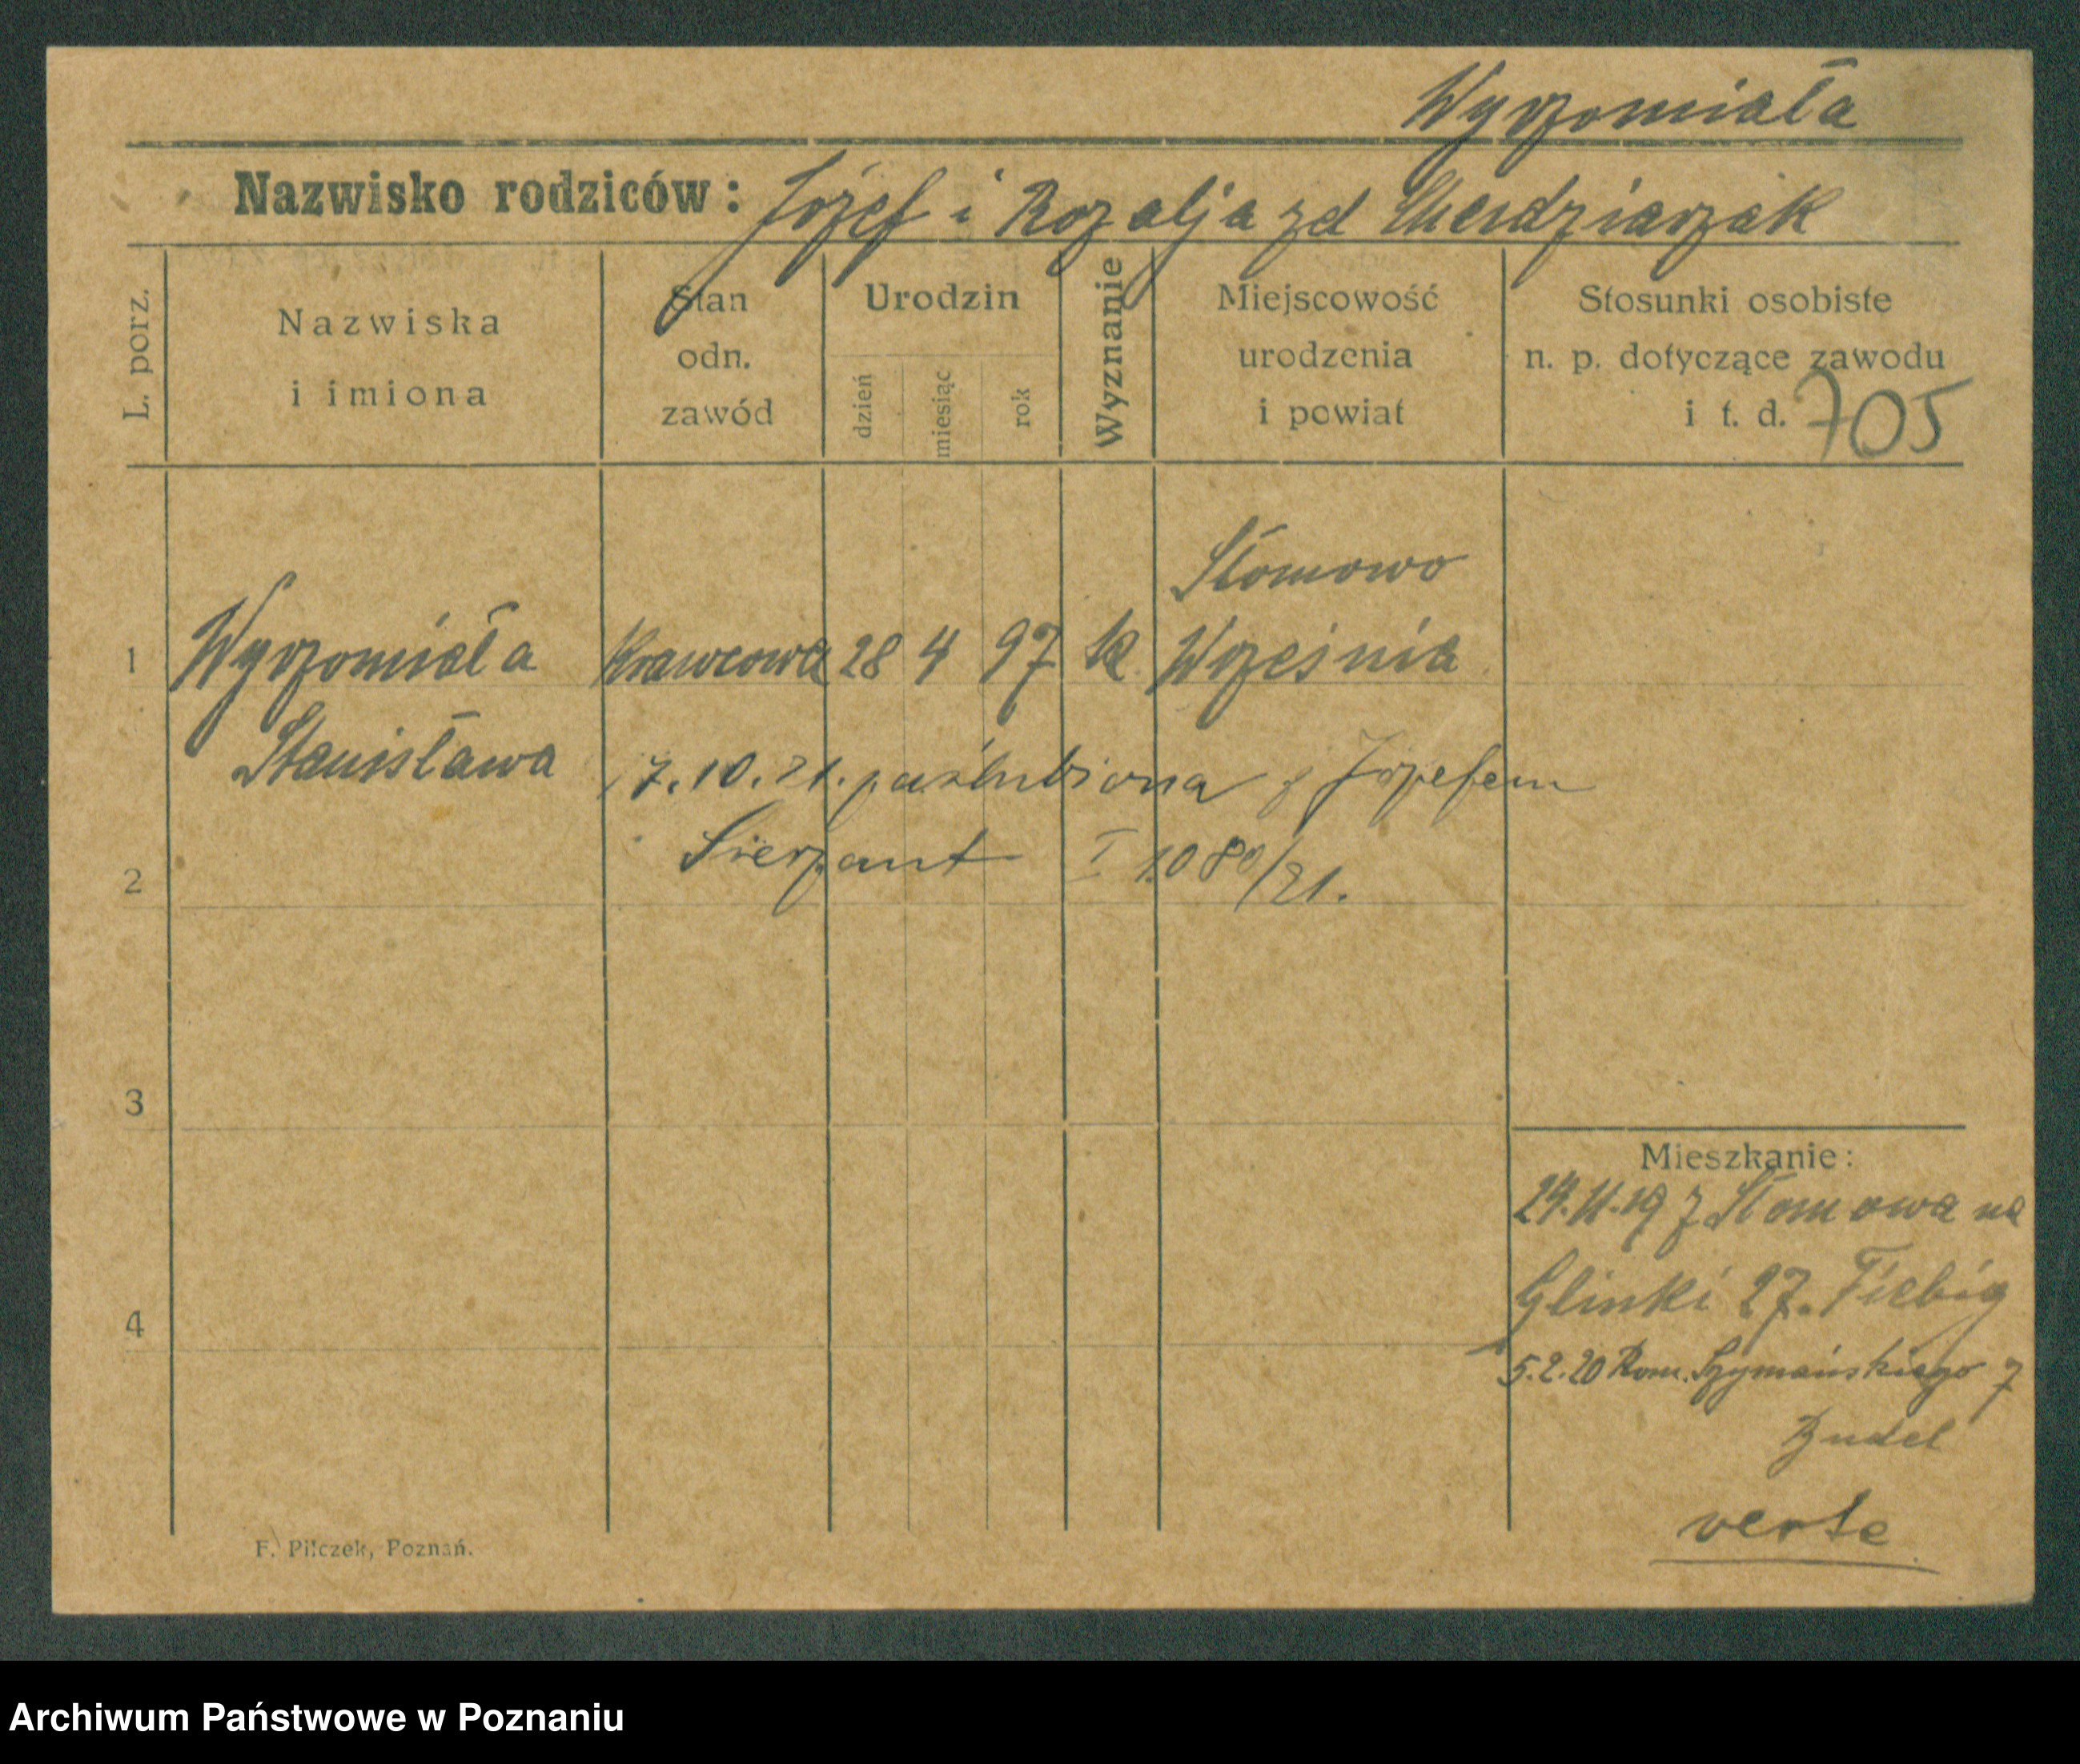 Wyrzomiała
Nazwisko rodziców: Józef i Rozalja zd
L. porz.
Nazwiska
i imiona
Stan
odn.
zawód
Urodzin
dzień
miesiąc
rok
Wyznanie
Miejscowość
urodzenia
i powiat
Stosunki osobiste
n. p. dotyczące zawodu
i t. d. 705
Słomowo
1 Wyrzomiała Krawcowa 28 4 97 k Września
Stanisława
7.10.21. poślubiona z Józefem
Sierzant I 1080/21.
2
3
4
Mieszkanie:
24.11.19 z Słomowa na
Glinki 27. Fiebig
5.2.20 Rom. Szymańskiego 7
verte
F. Pilczek, Poznań.
Archiwum Państwowe w Poznaniu